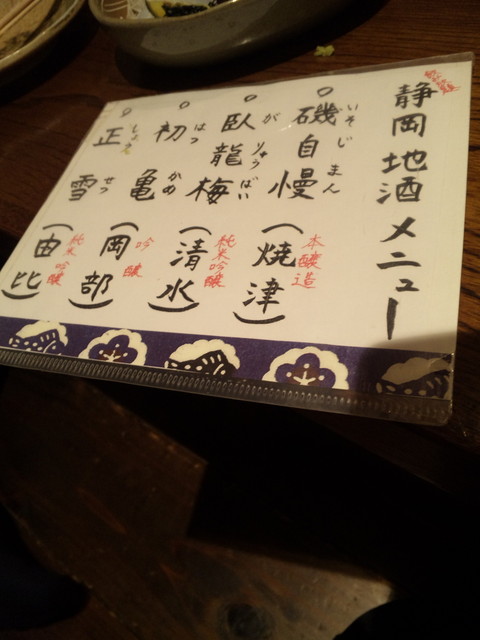 静岡地酒メニュー
磯自慢
いそじまん
(焼津)
本醸造
臥龍梅
がりゅうばい
(清水)
純米吟醸
初亀
はつかめ
(岡部)
吟醸
正雪
しょうせつ
(由比)
純米吟醸